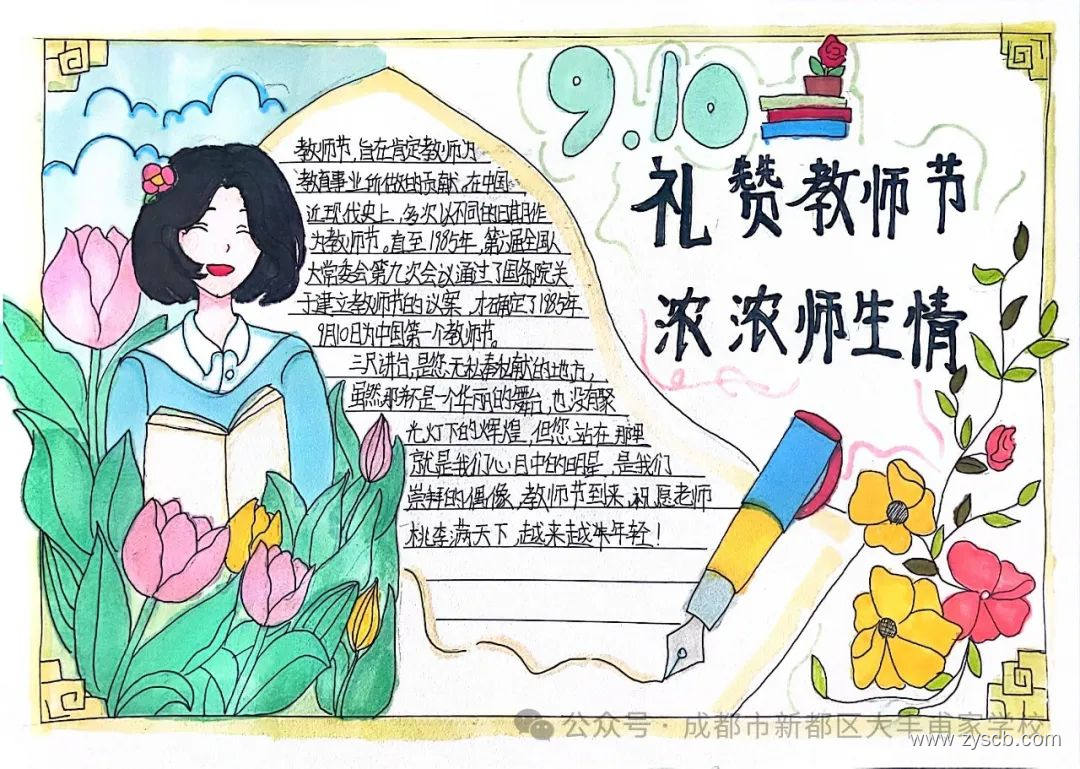 9.10
礼赞教师节
浓浓师生情
教师节,旨在肯定教师为
教育事业所做的贡献。在中国
近现代史上,多次以不同的日期作
为教师节。直至1985年,第六届全国人
大常委会第九次会议通过了国务院关
于建立教师节的议案,才确定了1985年
9月10日为中国第一个教师节。
三尺讲台,是您无私奉献的地方,
虽然那不是一个华丽的舞台,也没有聚
光灯下的辉煌,但您站在那里
就是我们心目中的明星,是我们
崇拜的偶像,教师节到来,祝愿老师
桃李满天下,越来越年轻!
公众号·成都市新都区大丰甫家学校
www.zyscb.com